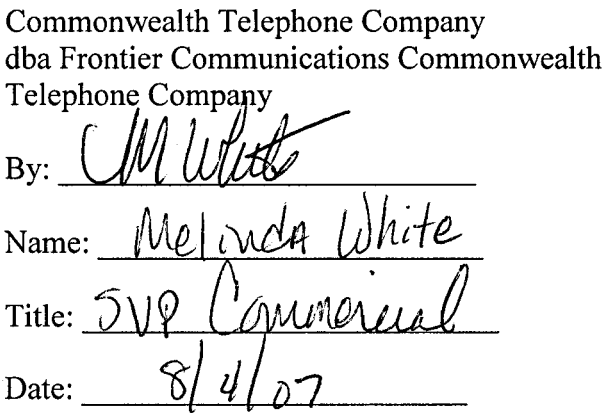 Commonwealth Telephone Company
dba Frontier Communications Commonwealth
Telephone Company
By: M White
Name: Melinda White
Title: SVP Commercial
Date: 8/4/07